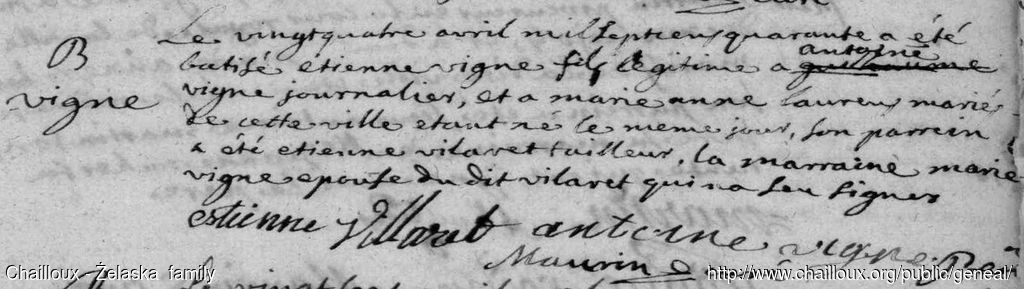 B
vigne
Le vingtquatre avril mil septcens quarante a été
batisé etienne vigne fils legitime a guillaume antoine
vigne journalier, et a marie anne laurens mariés
de cette ville etant né le meme jour, son parrein
a été etienne vilaret tailleur, la marraine marie
vigne epouse du dit vilaret qui na seu signer
estienne Villaret antoine vigne
Maurin
Chailloux - Żelaska family
http://www.chailloux.org/public/geneal/